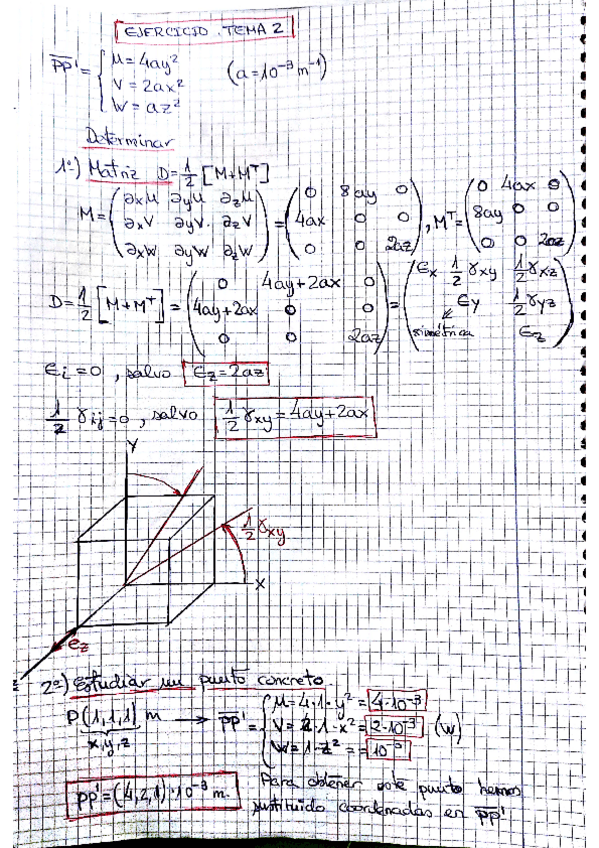 EJERCICIO TEMA 2
PP' = { u = 4ay²
v = 2ax²
w = az²
(a = 10⁻³ m⁻¹)
Determinar
1º) Matriz D = 1/2 [M + Mᵀ]
M = ( ∂xu ∂yu ∂zu ; ∂xv ∂yv ∂zv ; ∂xw ∂yw ∂zw ) = ( 0 8ay 0 ; 4ax 0 0 ; 0 0 2az ) , Mᵀ = ( 0 4ax 0 ; 8ay 0 0 ; 0 0 2az )
D = 1/2 [M + Mᵀ] = ( 0 4ay+2ax 0 ; 4ay+2ax 0 0 ; 0 0 2az ) = ( εx 1/2 γxy 1/2 γxz ; εy 1/2 γyz ; simétrica εz )
εi = 0 , salvo εz = 2az
1/2 γij = 0 , salvo 1/2 γxy = 4ay + 2ax
Y
1/2 γxy
X
εz
z
2º) Estudiar un punto concreto
P(1,1,1) m → PP' = { u = 4·1·y² = 4·10⁻³
x,y,z
v = 2·1·x² = 2·10⁻³ (w)
w = 1·z² = 10⁻³
PP' = (4,2,1)·10⁻³ m.
Para obtener este punto hemos
sustituido coordenadas en PP'